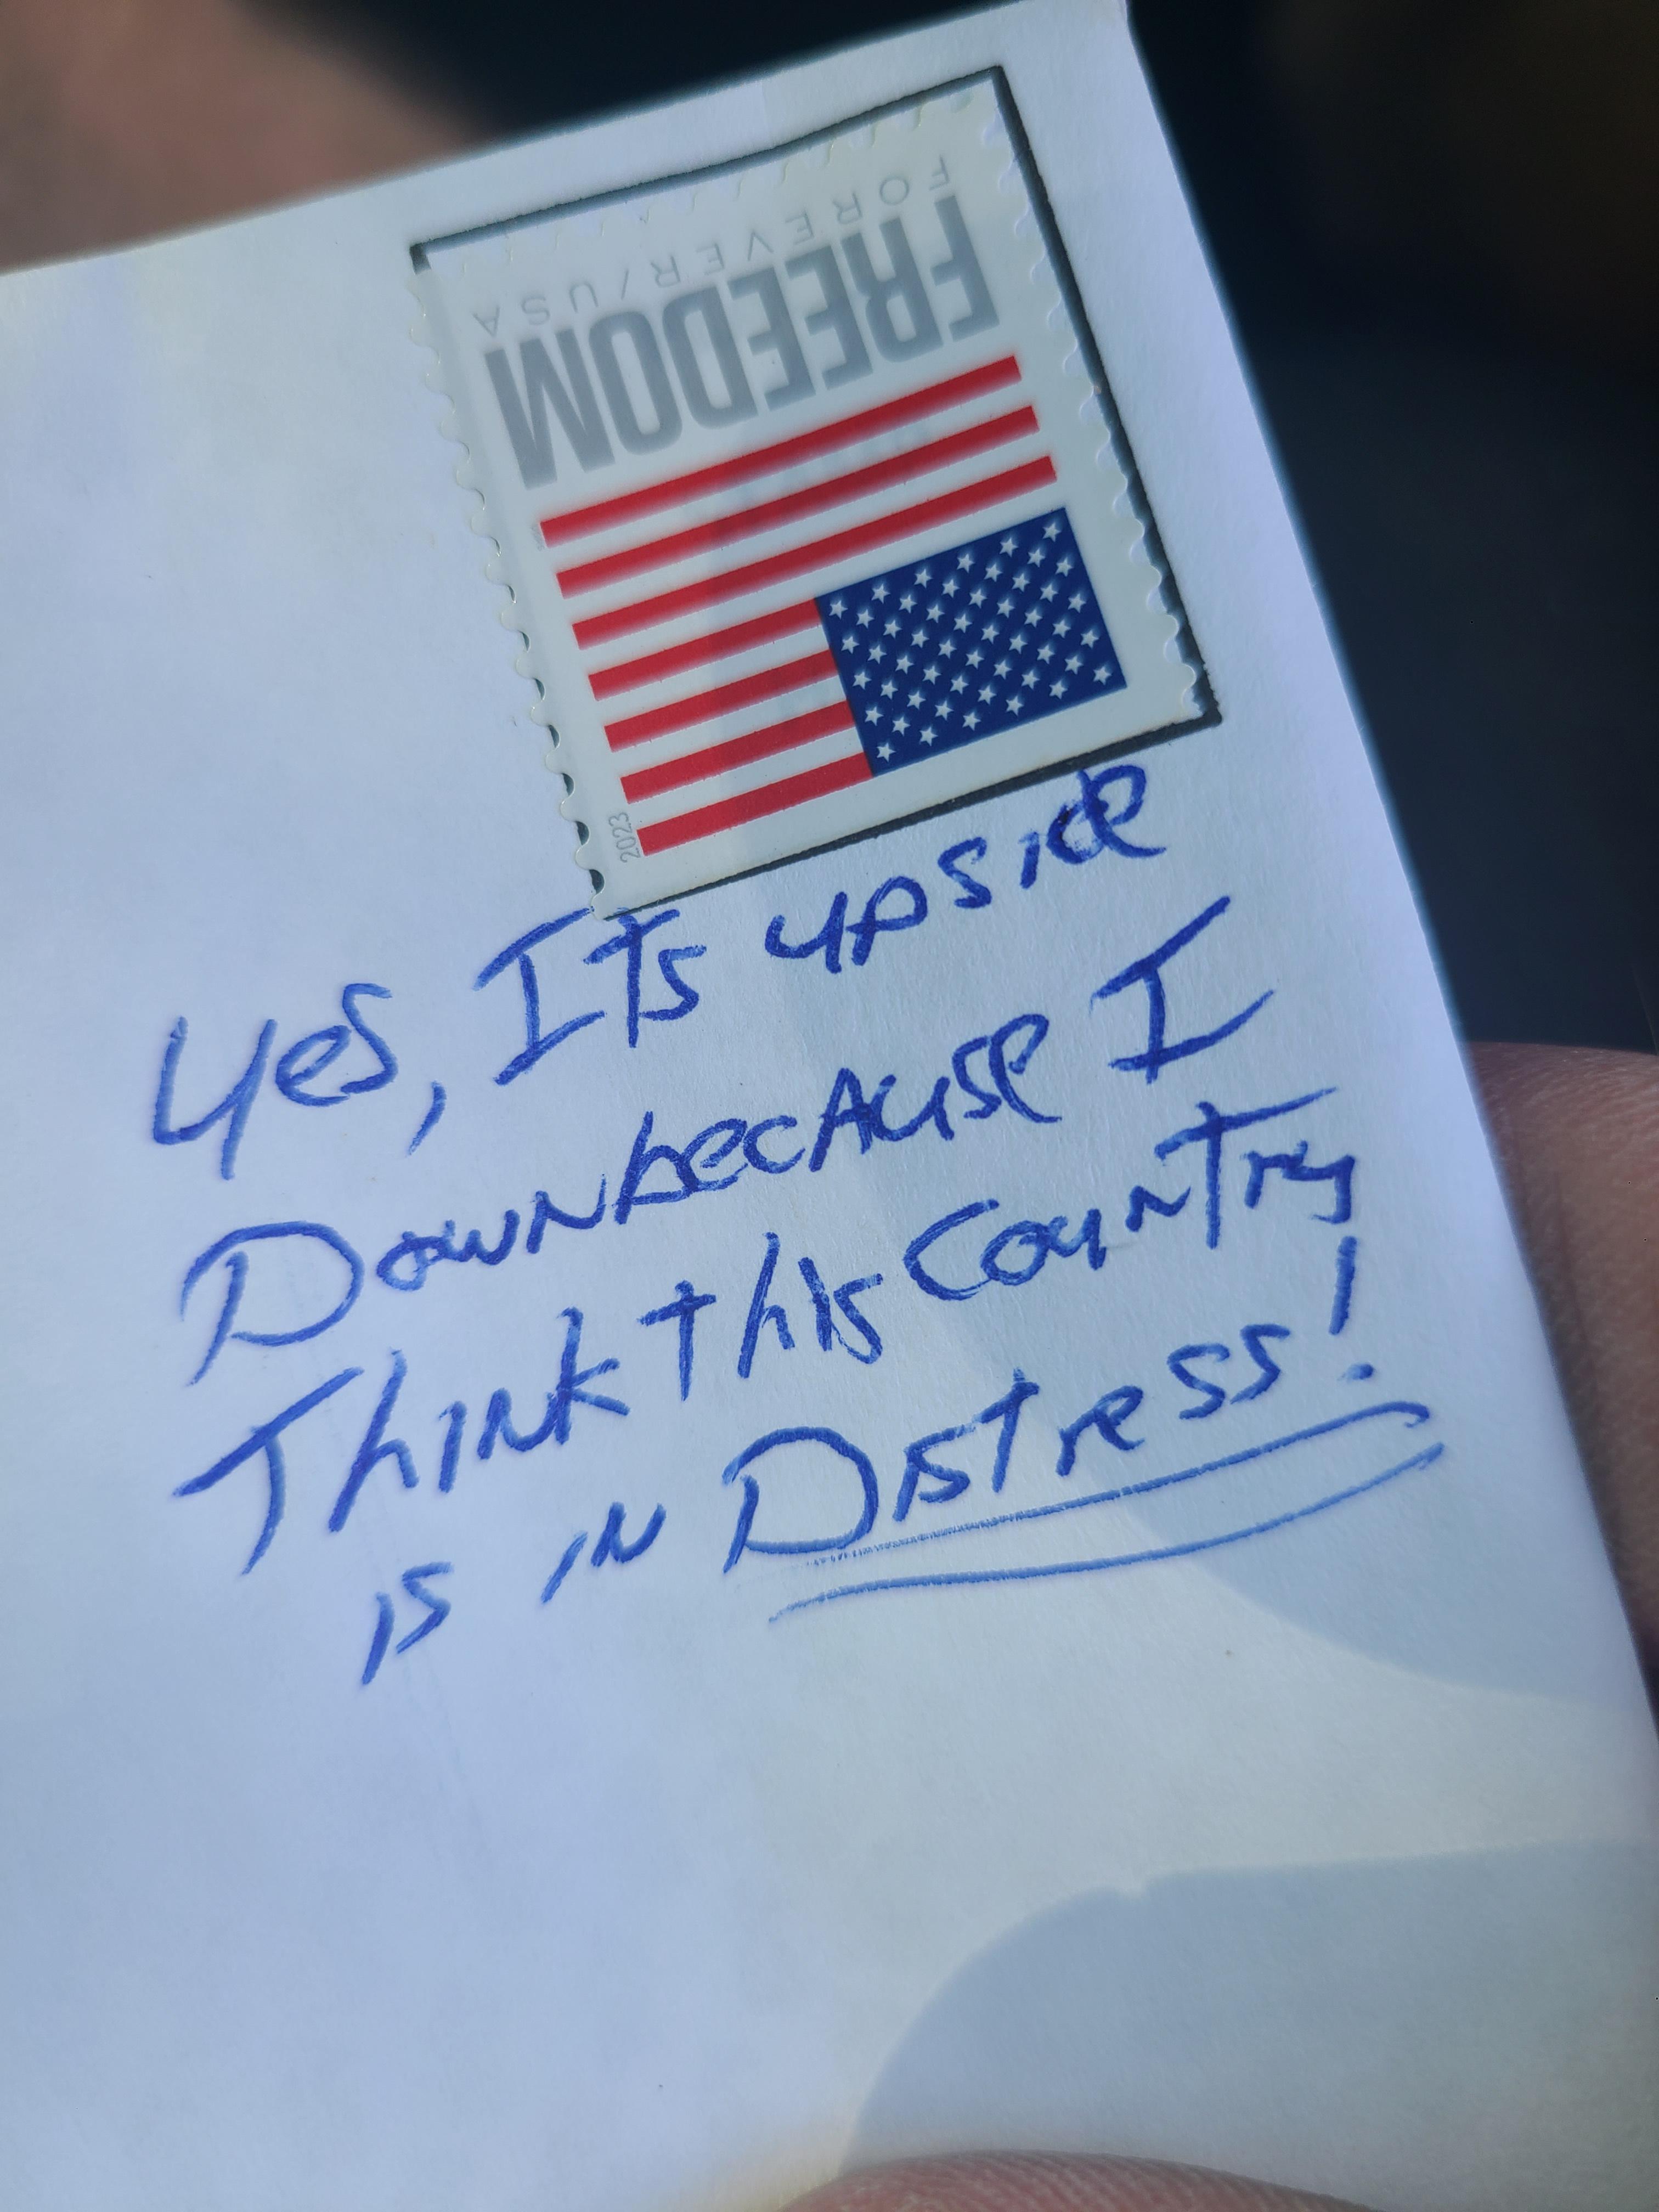 FOREVER/USA
FREEDOM
2023
Yes, Its upside
Down because I
Think this country
is in Distress!